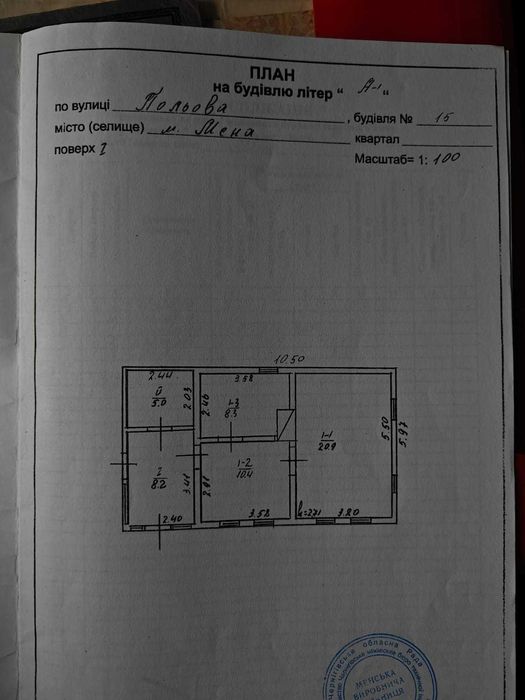 ПЛАН
на будівлю літер " А-1 "
по вулиці Польова, будівля № 15
місто (селище) м. Мена квартал
поверх 1 Масштаб= 1: 100
10.50
2.44 3.58
ІІ 5.0 2.03 2.46 1-3 8.5 1-1 20.9 5.50 5.97
І 8.2 3.41 2.91 1-2 10.4
2.40 3.58 h=2.71 3.80
обласна Рада
МЕНСЬКА
ВИРОБНИЧА